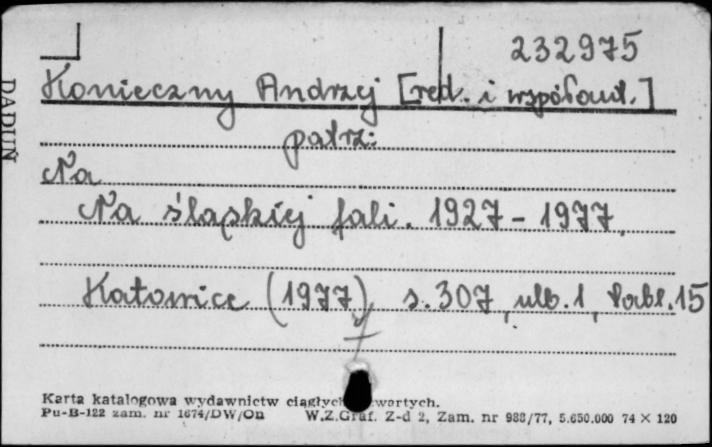 232975
Konieczny Andrzej [red. i współaut.]
patrz:
Na
Na śląskiej fali. 1927-1977.
Katowice (1977), s. 307, ulb. 1, tabl. 15
Karta katalogowa wydawnictw ciągłych
Pu-B-122 zam. nr 1674/DW/On W.Z.Graf. Z-d 2, Zam. nr 988/77, 5.650.000 74 × 120
DADUŃ